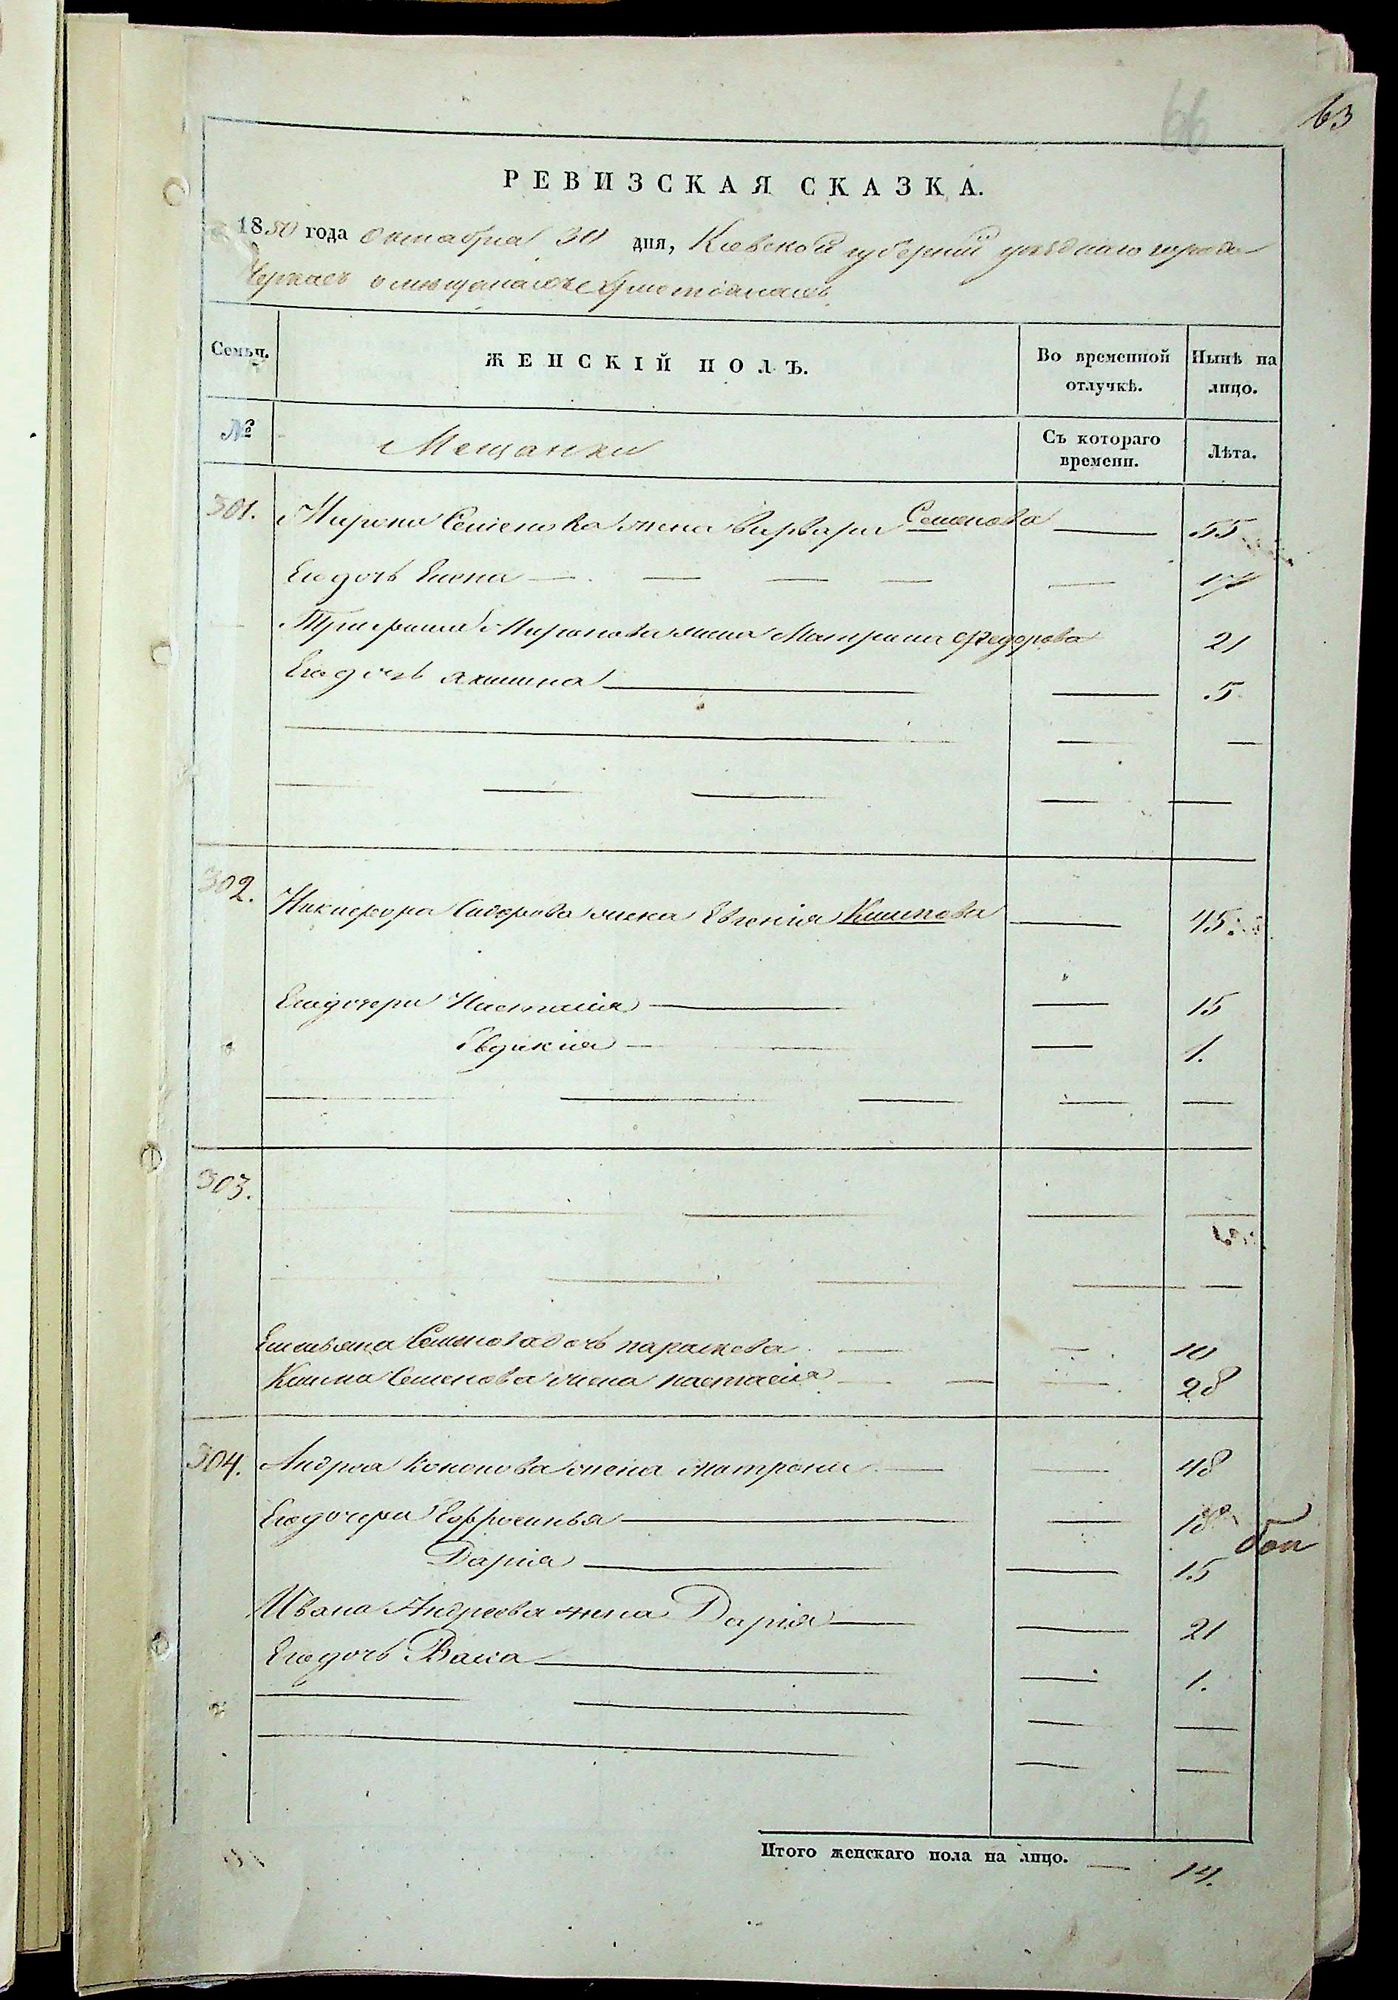 66
63
РЕВИЗСКАЯ СКАЗКА.
1850 года Октября 30 дня, Киевской губерніи уѣзднаго города
Черкасъ о мѣщанахъ христіанахъ
Семьи. ЖЕНСКІЙ ПОЛЪ. Во временной отлучкѣ. Нынѣ на лицо.
№ Мещанки Съ котораго времени. Лѣта.
301. Мирона Семенова жена Варвара Семенова 55
Его дочь Елена 17
Трифона Миронова жена Матрина Федорова 21
Его дочь Акилина 5
302. Никифора Сидорова жена Евгенія Климова 45.
Его дочери Настасія 15
Евдокія 1.
303.
Емельяна Семенова дочь параскева 10
Клима Семенова жена настасія 28
304. Андрея Кононова жена Матрона 48
Его дочери Ефросинья 18
Дарія 15
Ивана Андреева жена Дарія 21
Его дочь Васа 1.
Итого женскаго пола на лицо. 14.